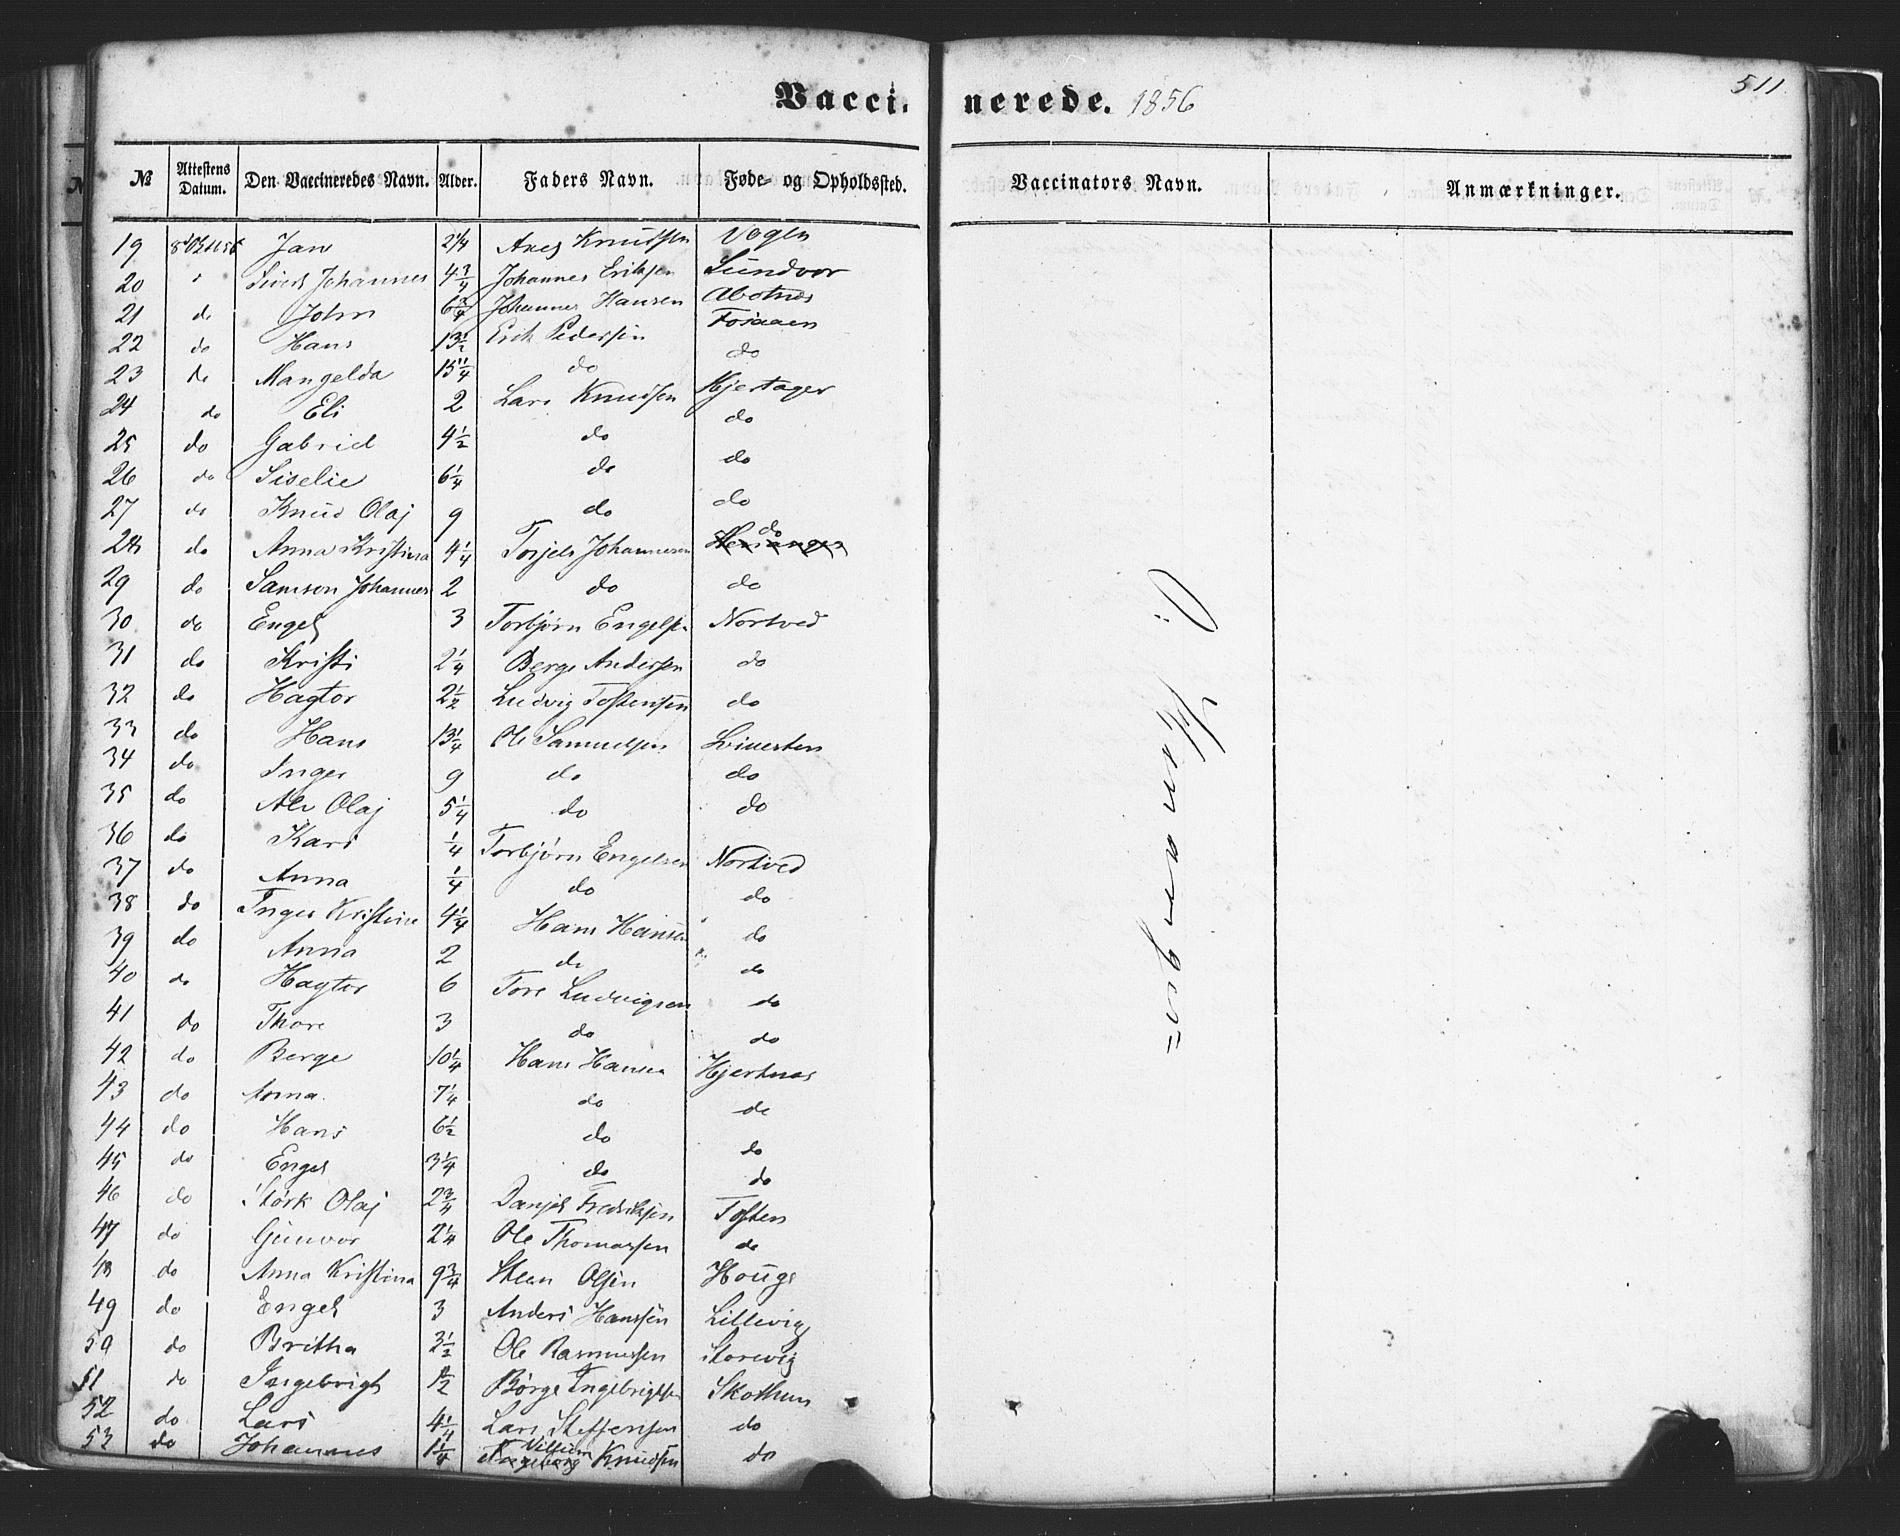 511
Vaccinerede. 1856
№ Attestens Datum. Den Vaccineredes Navn. Alder. Faders Navn. Føde- og Opholdssted. Vaccinators Navn. Anmærkninger.
19 Jan 2 1/4 Knudsen Vogen
20 Sivert Johannes 4 3/4 Johannes Eriksen Sundvor
21 do John 6 3/4 Johannes Hansen
22 do Hans 13 1/2 Erik Pedersen Fosaaen
23 do Mangelda do do
24 do Eli 2 Lars Knudsen Hjertager
25 do Gabriel 4 1/2 do do
26 do Siselie 6 1/4 do do
27 do Knud Olaj 9 do do
28 do Anna Kristina 4 1/4 Torjels Johannesen do
29 do Samson Johannes 2 do do
30 do Engel 3 Torbjørn Engelsen Nortved
31 do Kristi 2 1/4 Berge Andersen do
32 do Hagtor 2 1/2 Ludvig Tostensen do
33 do Hans 13 1/4 Ole Samuelsen
34 do Inger 9 do do
35 do Olaj 5 1/4 do do
36 do Kari 1/4 Torbjørn Engelsen Nortved
37 do Anna 1/4 do do
38 do Inger Kristine 4 1/4 Hans Hansen do
39 do Anna 2 do do
40 do Hagtor 6 Tore Ludvigsen do
41 do Thore 3 do do
42 do Berge 10 1/4 Hans Hansen Hjertnes
43 do Anna 7 1/4 do do
44 do Hans 6 1/2 do do
45 do Engel 3 1/4 do do
46 do Størk Olaj 2 3/4 Danjel Fredriksen Tosten
47 do Gunvor 2 1/4 Ole Thomassen do
48 do Anna Kristina 9 3/4 Steen Olsen Houge
49 do Engel 3 Anders Hanssen Lillevig
50 do Britha 3 1/2 Ole Rasmussen Storevig
51 do Ingebrigt 1/2 Børge Ingebrigtsen Skothun
52 do Lars 4 1/4 Lars Steffensen do
53 do Johannes 1 1/4 Villum Knudsen do